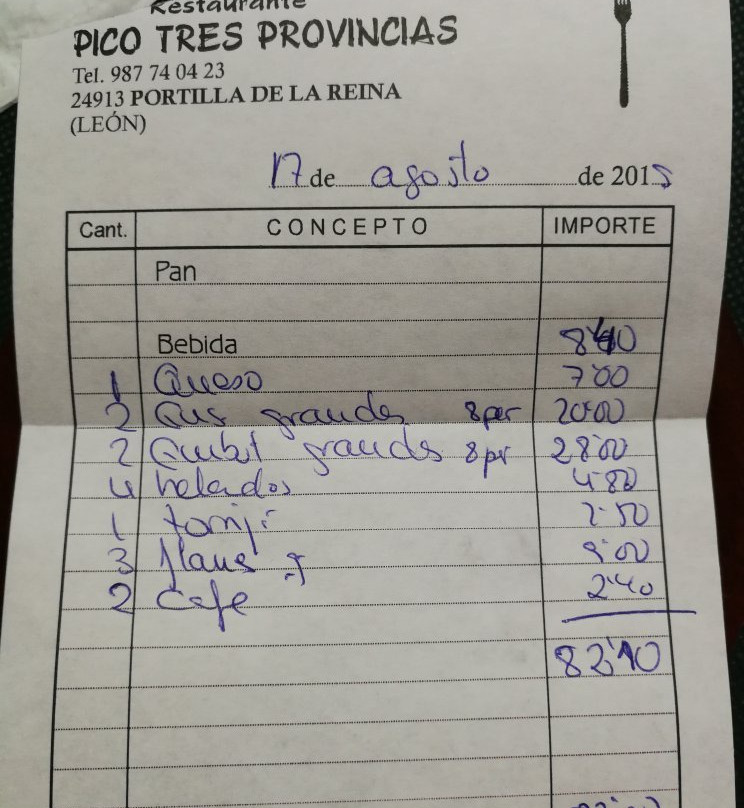 Restaurante
PICO TRES PROVINCIAS
Tel. 987 74 04 23
24913 PORTILLA DE LA REINA
(LEÓN)
17 de agosto de 2015
Cant. CONCEPTO IMPORTE
Pan
Bebida 8'40
1 Queso 7'00
2 grandes 8 per 20'00
2 grandes 8 pr 28'00
4 helados 4'80
1 2'50
3 flans 9'00
2 Cafe 2'40
82'10